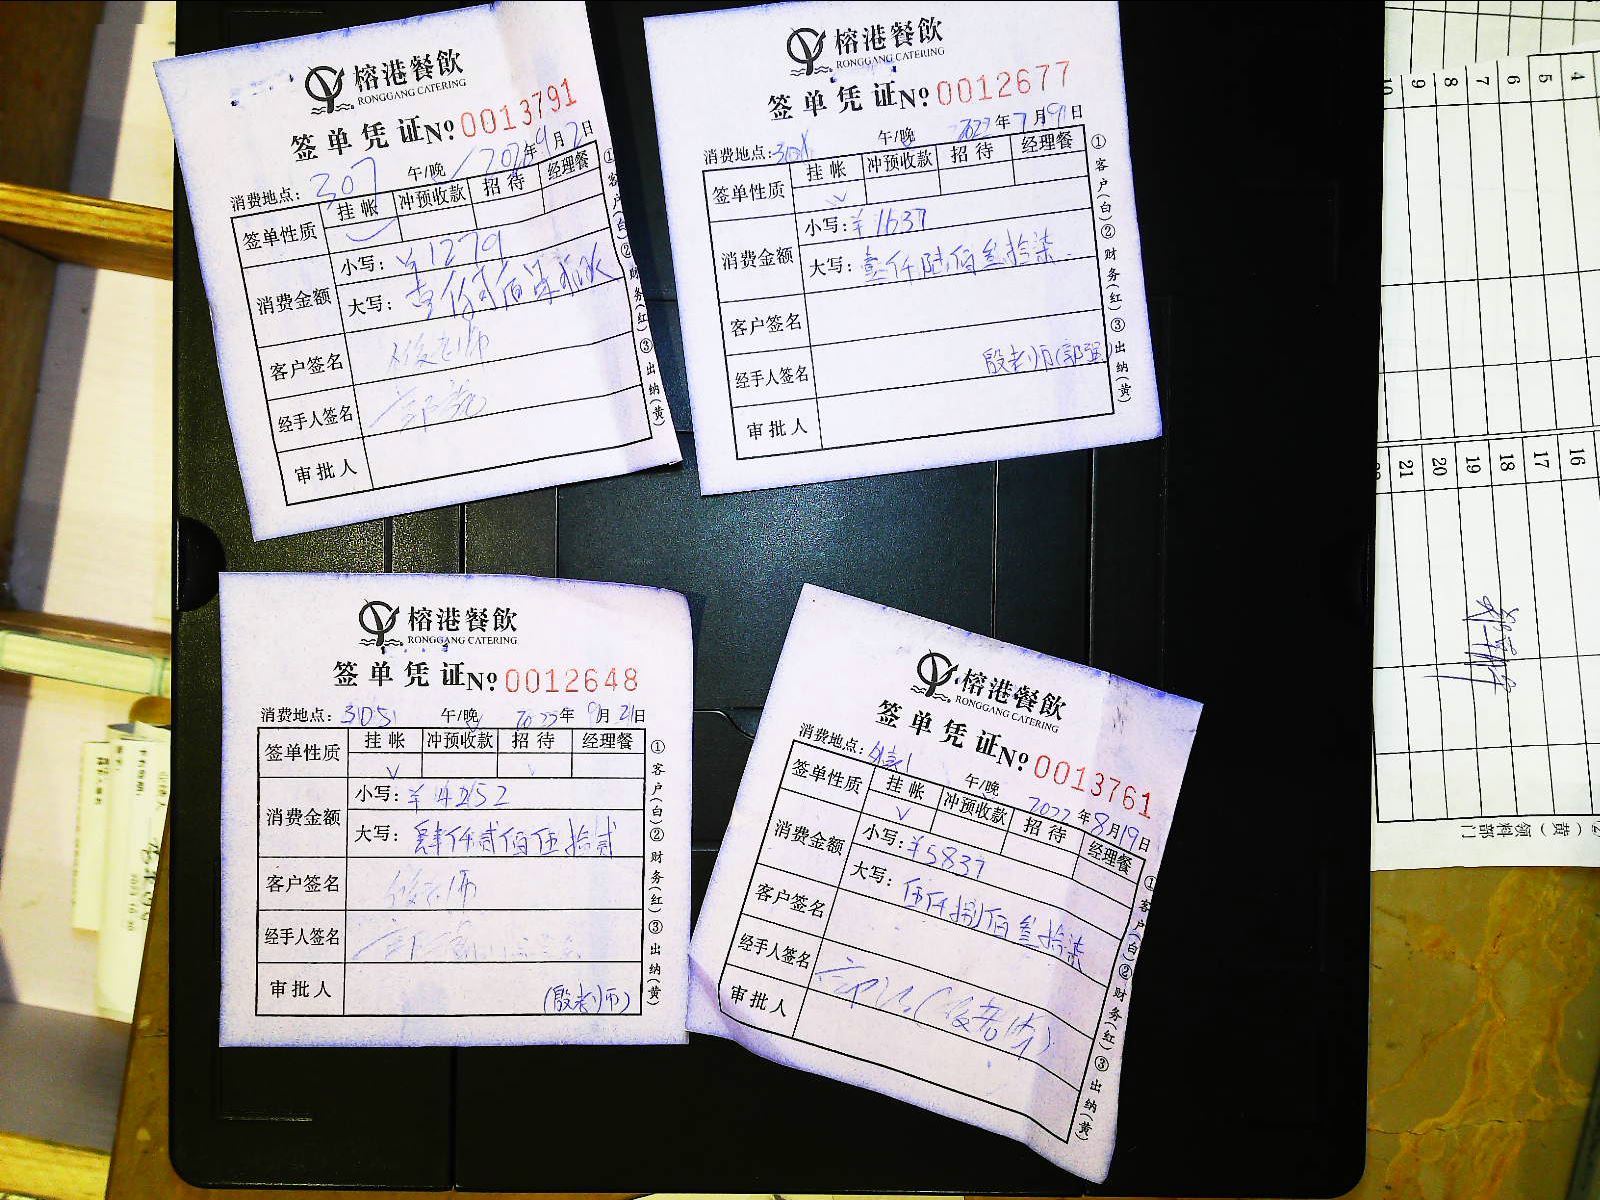 榕港餐飲
RONGGANG CATERING
签单凭证№ 0013791
消费地点: 307 午/晚 年9月2日
签单性质 挂帐 冲预收款 招待 经理餐
消费金额 小写: ¥1279
大写: 壹仟贰佰柒拾玖
客户签名
经手人签名
审批人
①客户(白)②财务(红)③出纳(黄)
榕港餐飲
RONGGANG CATERING
签单凭证№ 0012677
消费地点: 午/晚 2022年7月19日
签单性质 挂帐 冲预收款 招待 经理餐
消费金额 小写: ¥1637
大写: 壹仟陆佰叁拾柒
客户签名
经手人签名 殷老师(郭强)
审批人
①客户(白)②财务(红)③出纳(黄)
榕港餐飲
RONGGANG CATERING
签单凭证№ 0012648
消费地点: 午/晚 2022年 月21日
签单性质 挂帐 冲预收款 招待 经理餐
消费金额 小写: ¥4252
大写: 肆仟贰佰伍拾贰
客户签名 殷老师
经手人签名
审批人 (殷老师)
①客户(白)②财务(红)③出纳(黄)
榕港餐飲
RONGGANG CATERING
签单凭证№ 0013761
消费地点: 午/晚 2022年8月19日
签单性质 挂帐 冲预收款 招待 经理餐
消费金额 小写: ¥5837
大写: 伍仟捌佰叁拾柒
客户签名
经手人签名 (殷老师)
审批人
①客户(白)②财务(红)③出纳(黄)
4
5
6
7
8
9
10
16
17
18
19
20
21
(黄)领料部门